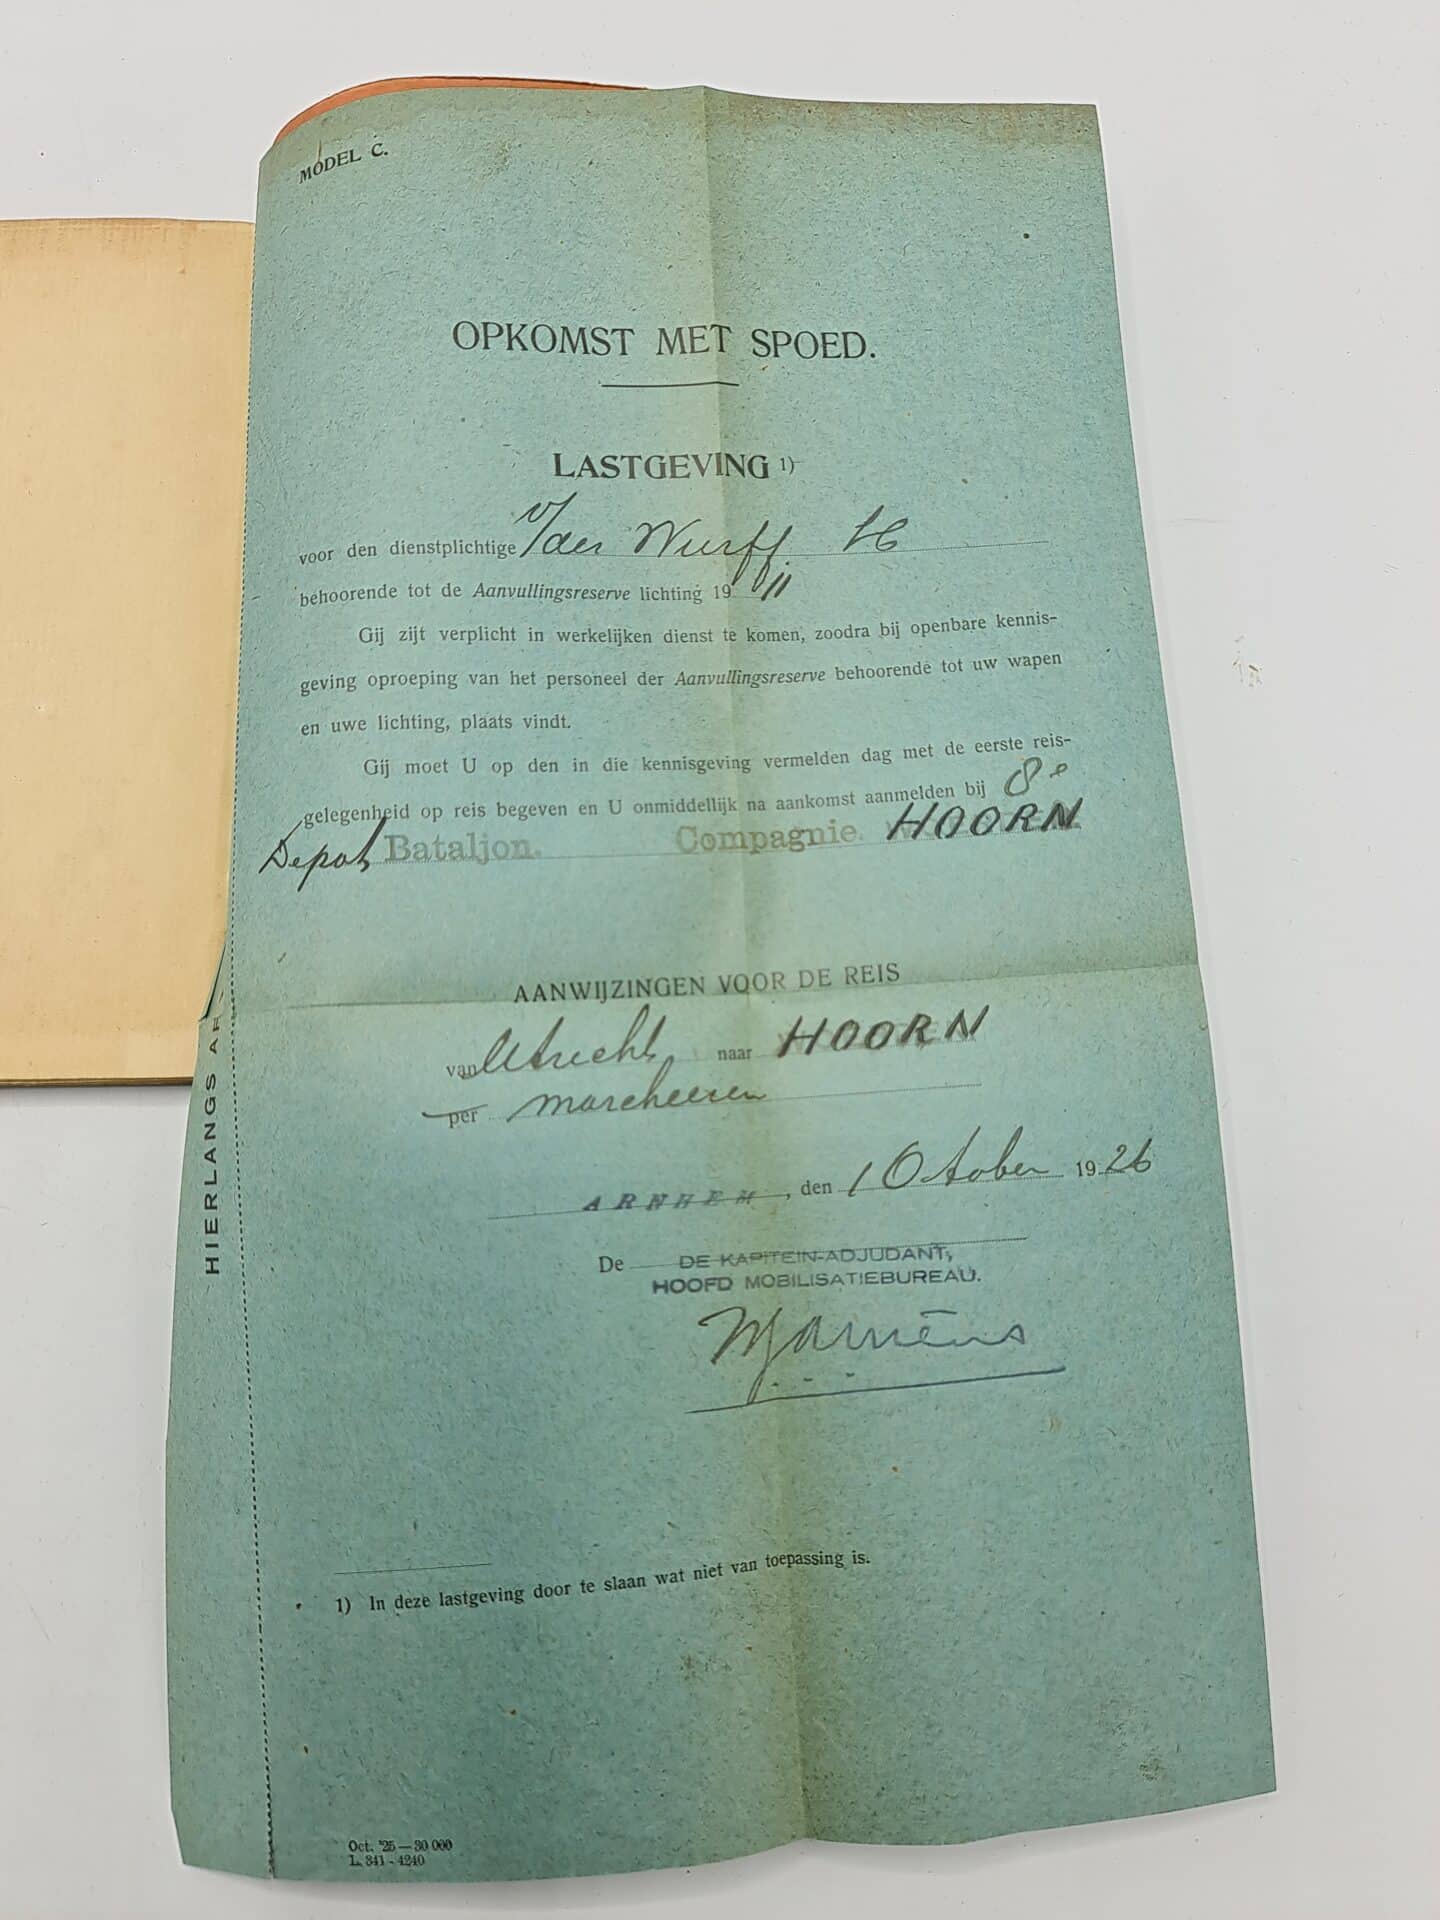 MODEL C.
OPKOMST MET SPOED.
LASTGEVING 1)
voor den dienstplichtige v/der Wurff H
behoorende tot de Aanvullingsreserve lichting 19 11
Gij zijt verplicht in werkelijken dienst te komen, zoodra bij openbare kennis-
geving oproeping van het personeel der Aanvullingsreserve behoorende tot uw wapen
en uwe lichting, plaats vindt.
Gij moet U op den in die kennisgeving vermelden dag met de eerste reis-
gelegenheid op reis begeven en U onmiddellijk na aankomst aanmelden bij 8e
Depot Bataljon. Compagnie. HOORN
AANWIJZINGEN VOOR DE REIS
van Utrecht naar HOORN
per marcheeren
ARNHEM, den 1 October 1926
De DE KAPITEIN-ADJUDANT,
HOOFD MOBILISATIEBUREAU.
1) In deze lastgeving door te slaan wat niet van toepassing is.
Oct. '25 — 30 000
L. 341 - 4240
HIERLANGS